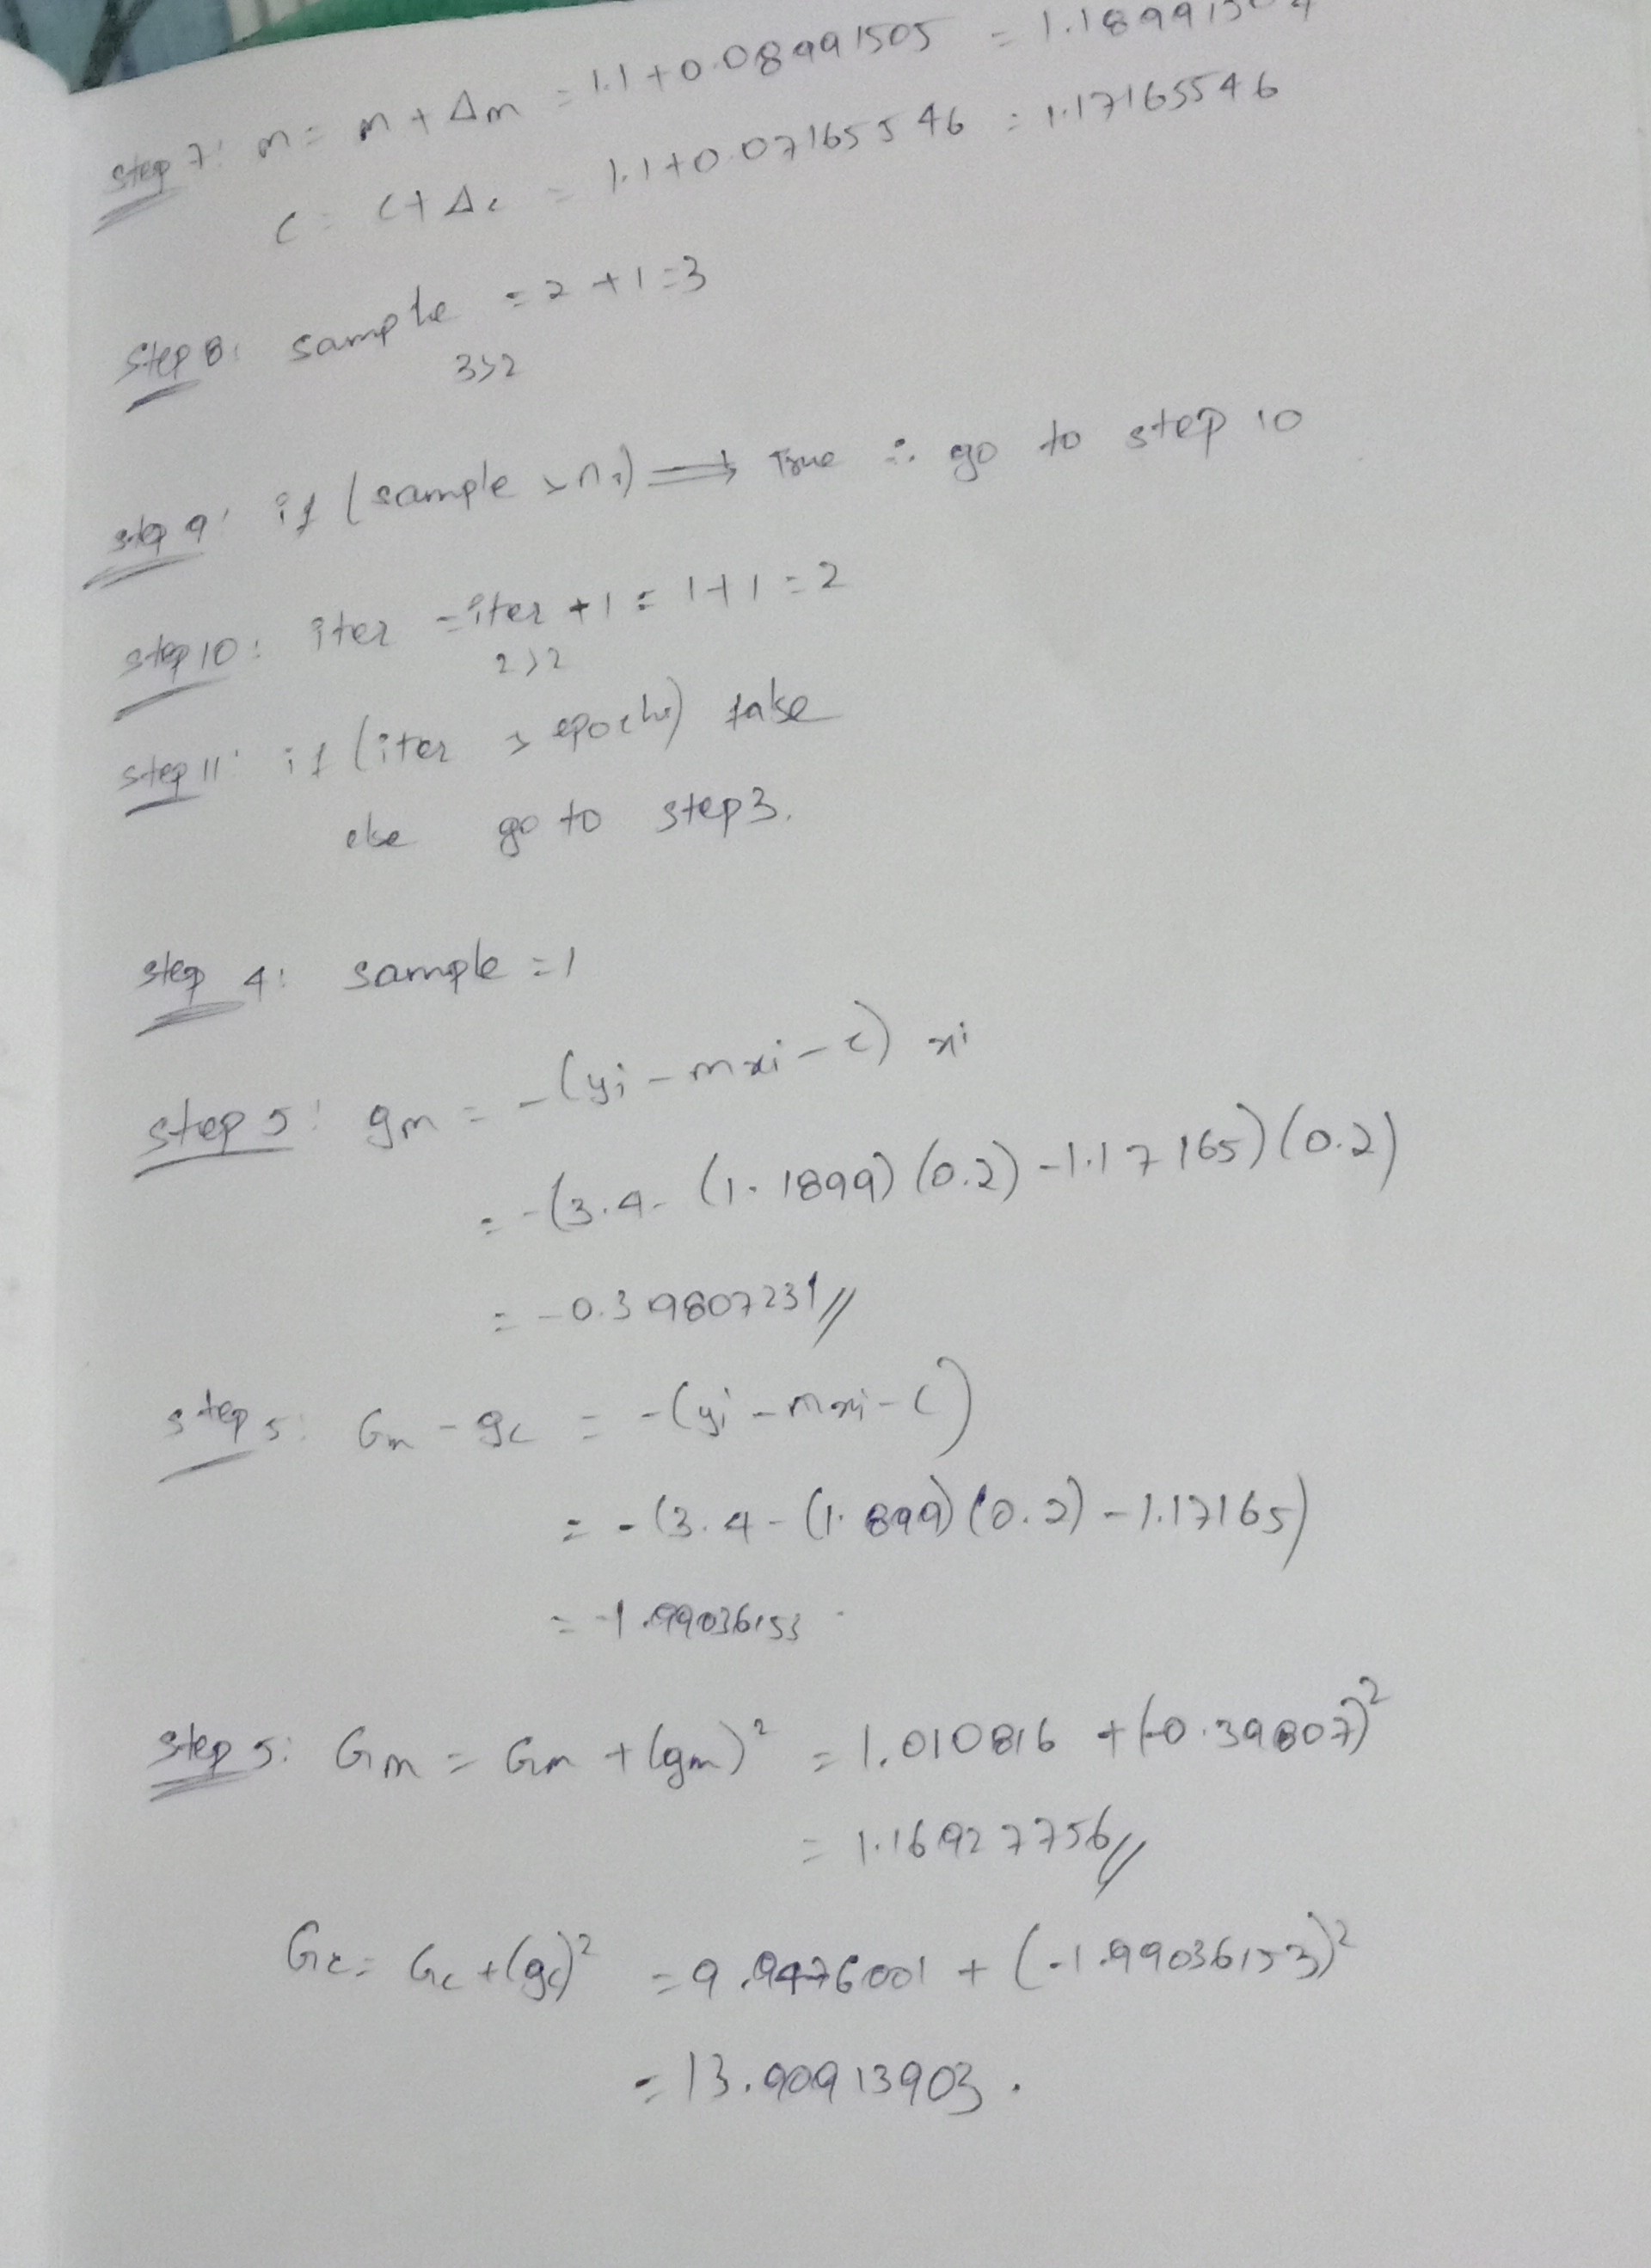 step 7: m = m + Δm = 1.1 + 0.08991505 = 1.1899150
c = c + Δc = 1.1 + 0.07165546 = 1.17165546
step 8: sample = 2 + 1 = 3
3>2
step 9: if (sample > ns) ⟹ True ∴ go to step 10
step 10: iter = iter + 1 = 1 + 1 = 2
2>2
step 11: if (iter > epochs) false
else go to step 3.
step 4: sample = 1
step 5: gm = -(yi - mxi - c) xi
= -(3.4 - (1.1899)(0.2) - 1.17165)(0.2)
= -0.39807231//
step 5: Gm - gc = -(yi - mxi - c)
= -(3.4 - (1.899)(0.2) - 1.17165)
= -1.99036153
step 5: Gm = Gm + (gm)² = 1.010816 + (-0.39807)²
= 1.16927756//
Gc = Gc + (gc)² = 9.9476001 + (-1.99036153)²
= 13.90913903.